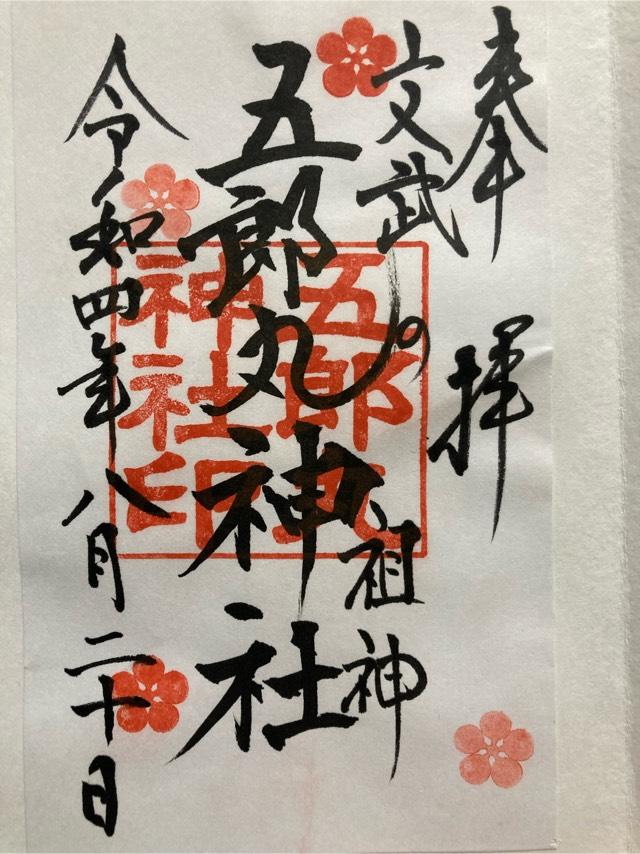 奉拝
文武の祖神
五郎丸神社
令和四年八月二十日
五郎丸
神社印